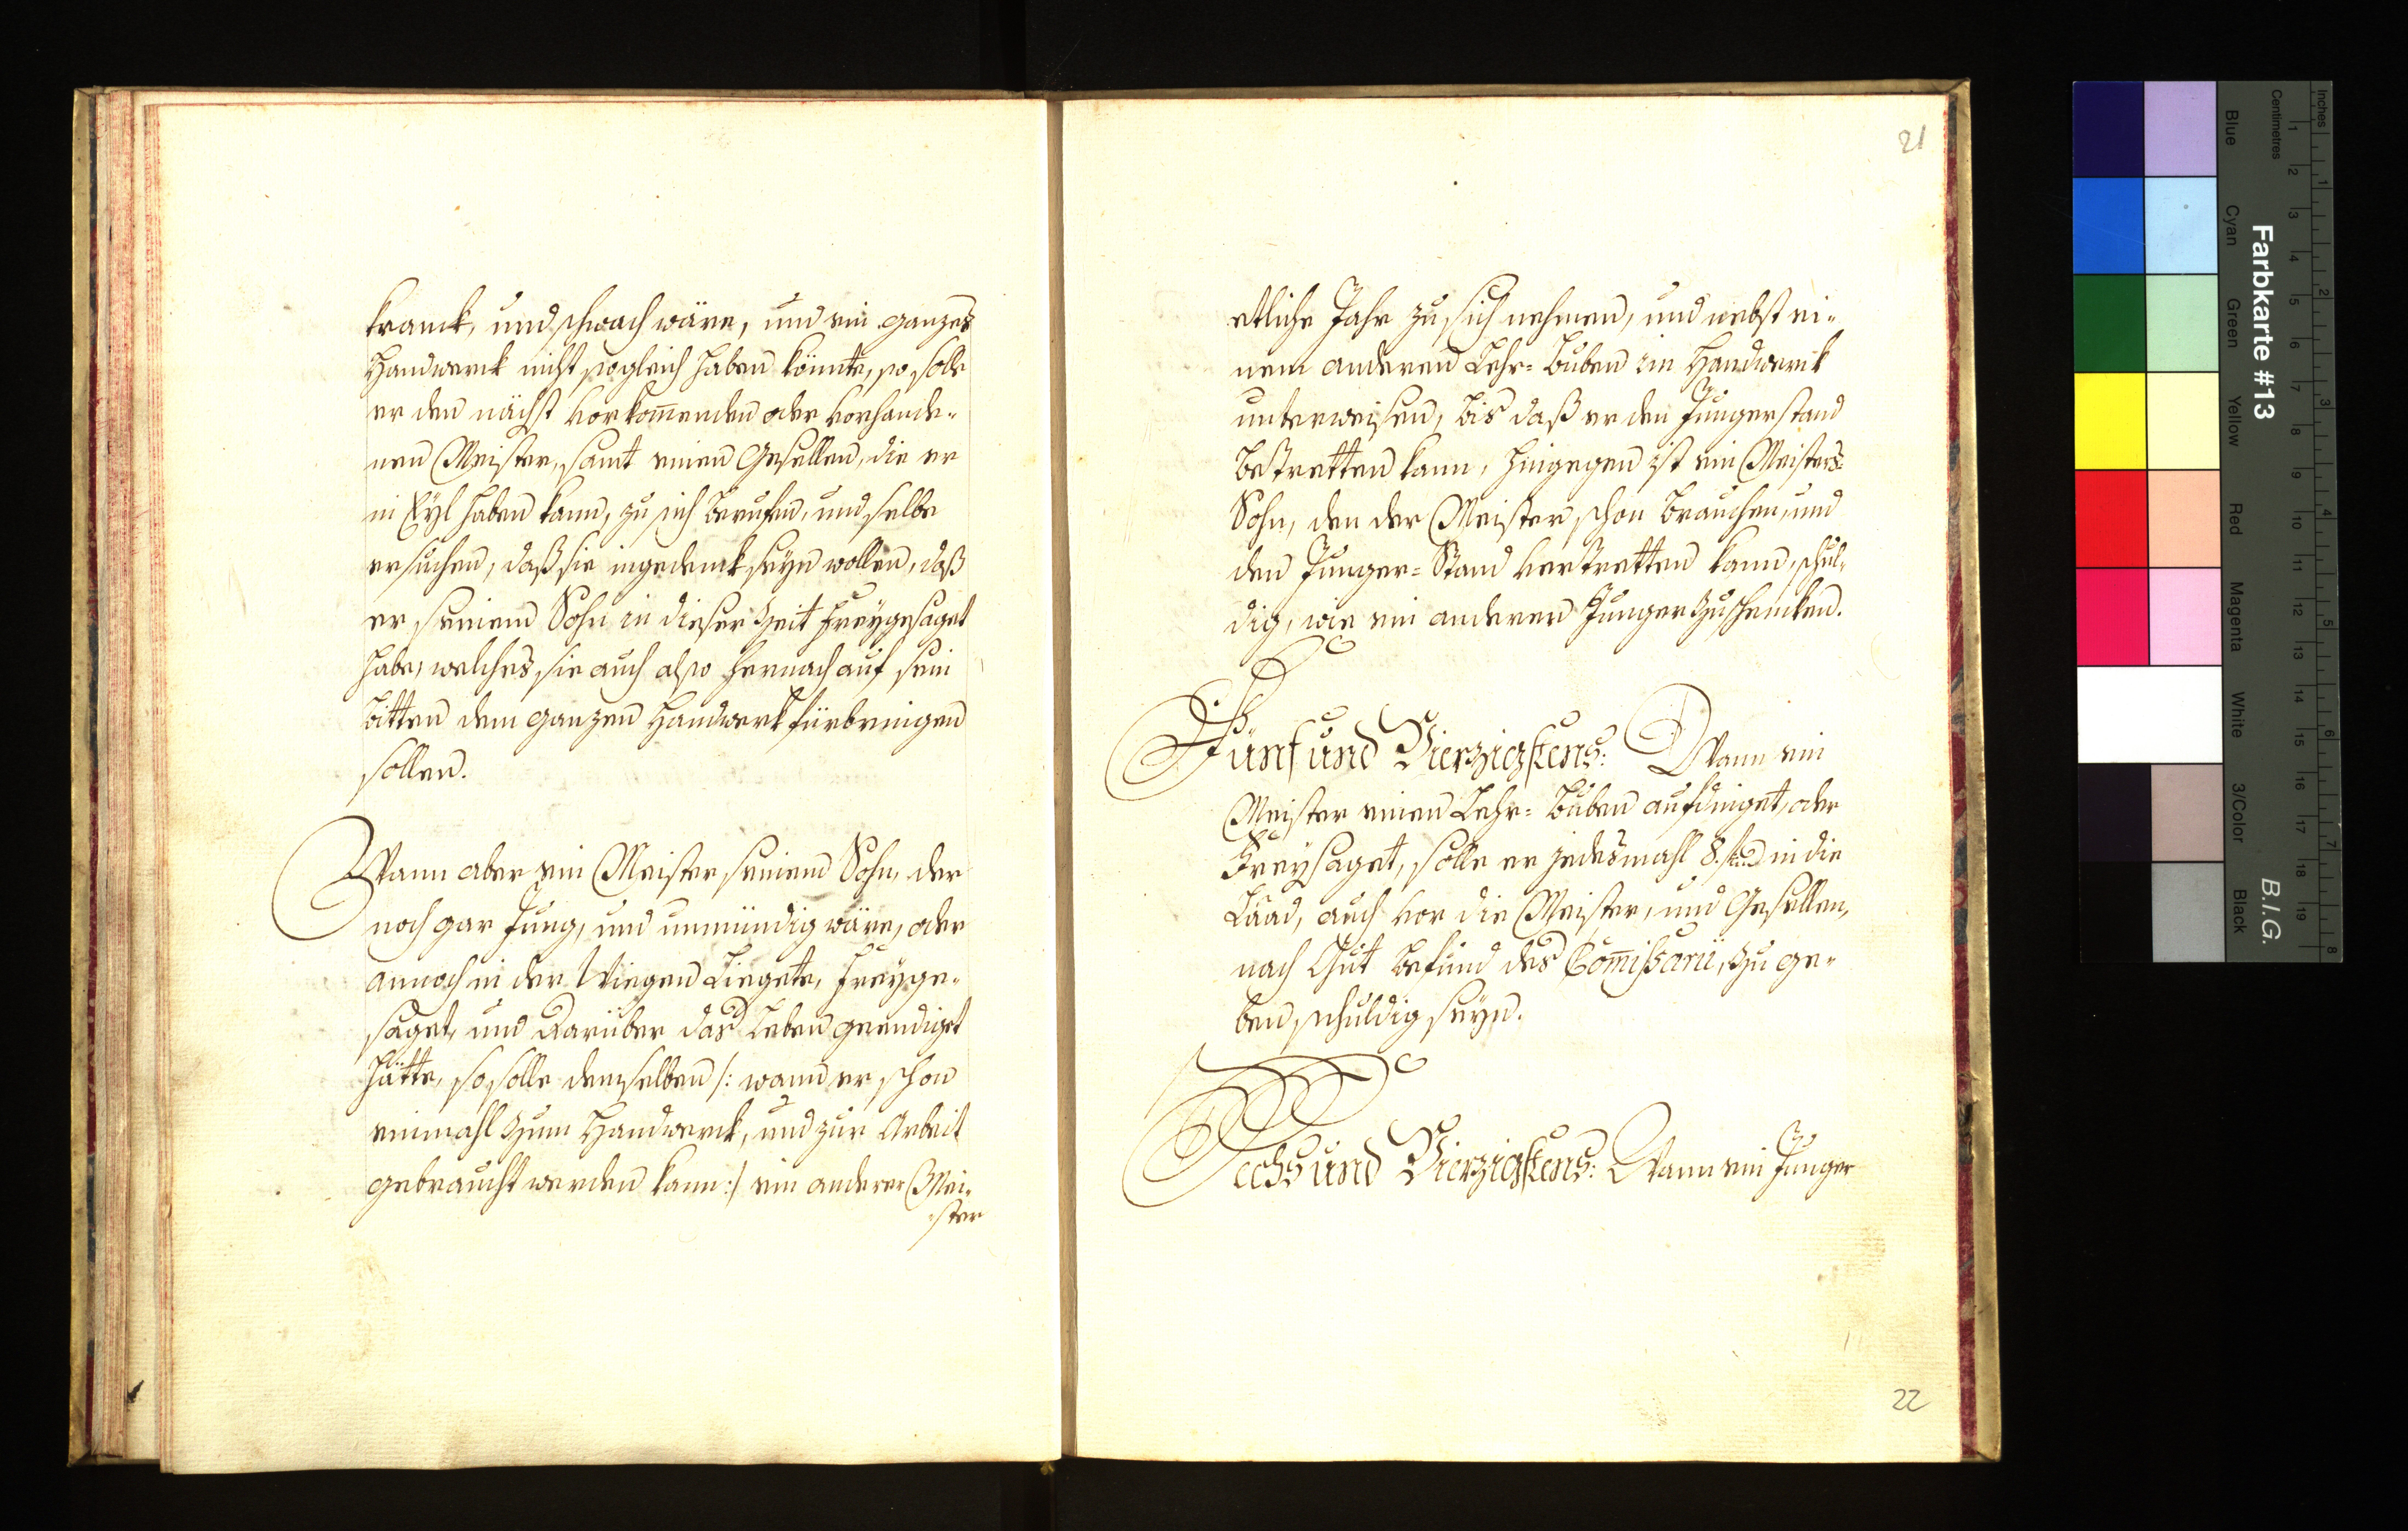 kranck, und schwach wäre, und ein ganzes
Handwerck nicht sogleich haben könnte, so solle
er den nächst vorkom̄enden oder vorhande-
nen Meister, samt einen Gesellen, die er
in Eyl haben kann, zu sich beruffen, und selbe
ersuchen, daß sie ingedenck seyn wollen, daß
er seinem Sohn in dieser Zeit freygesaget
habe, welches sie auch also hernach auf sein
bitten dem ganzen Handwerk fürbringen
sollen.
Wann aber ein Meister seinem Sohn, der
noch gar Jung, und unmündig wäre, oder
annoch in der Wiegen Liegete, freyge-
saget, und darüber das Leben geendiget
hätte, so solle demselben /: wann er schon
einmahl zum Handwerck, und zur Arbeit
gebraucht werden kann :/ ein anderer Mei-
ster
21
etliche Jahr zu sich nehmen, und nebst ei-
nem anderen Lehr-Buben im Handwerck
unterweisen, bis daß er den Jungerstand
betretten kann, hingegen ist ein Meisters-
Sohn, den der Meister schon brauchen, und
den Junger-Stand vertretten kann, schul-
dig, wie ein anderer Junger zuschencken.
Fünf und Vierzigstens: Wann ein
Meister einen Lehr-Buben aufdinget, oder
Freysaget, solle er jedesmahl 8. in die
Laad, auch vor die Meister, und Gesellen,
nach Gut befund des Com̄issarii, zu ge-
ben schuldig seyn.
Sechs und Vierzigstens: Wann ein Junger
22
Farbkarte #13
B.I.G.
Inches
Centimetres
Blue
Cyan
Green
Yellow
Red
Magenta
White
3/Color
Black